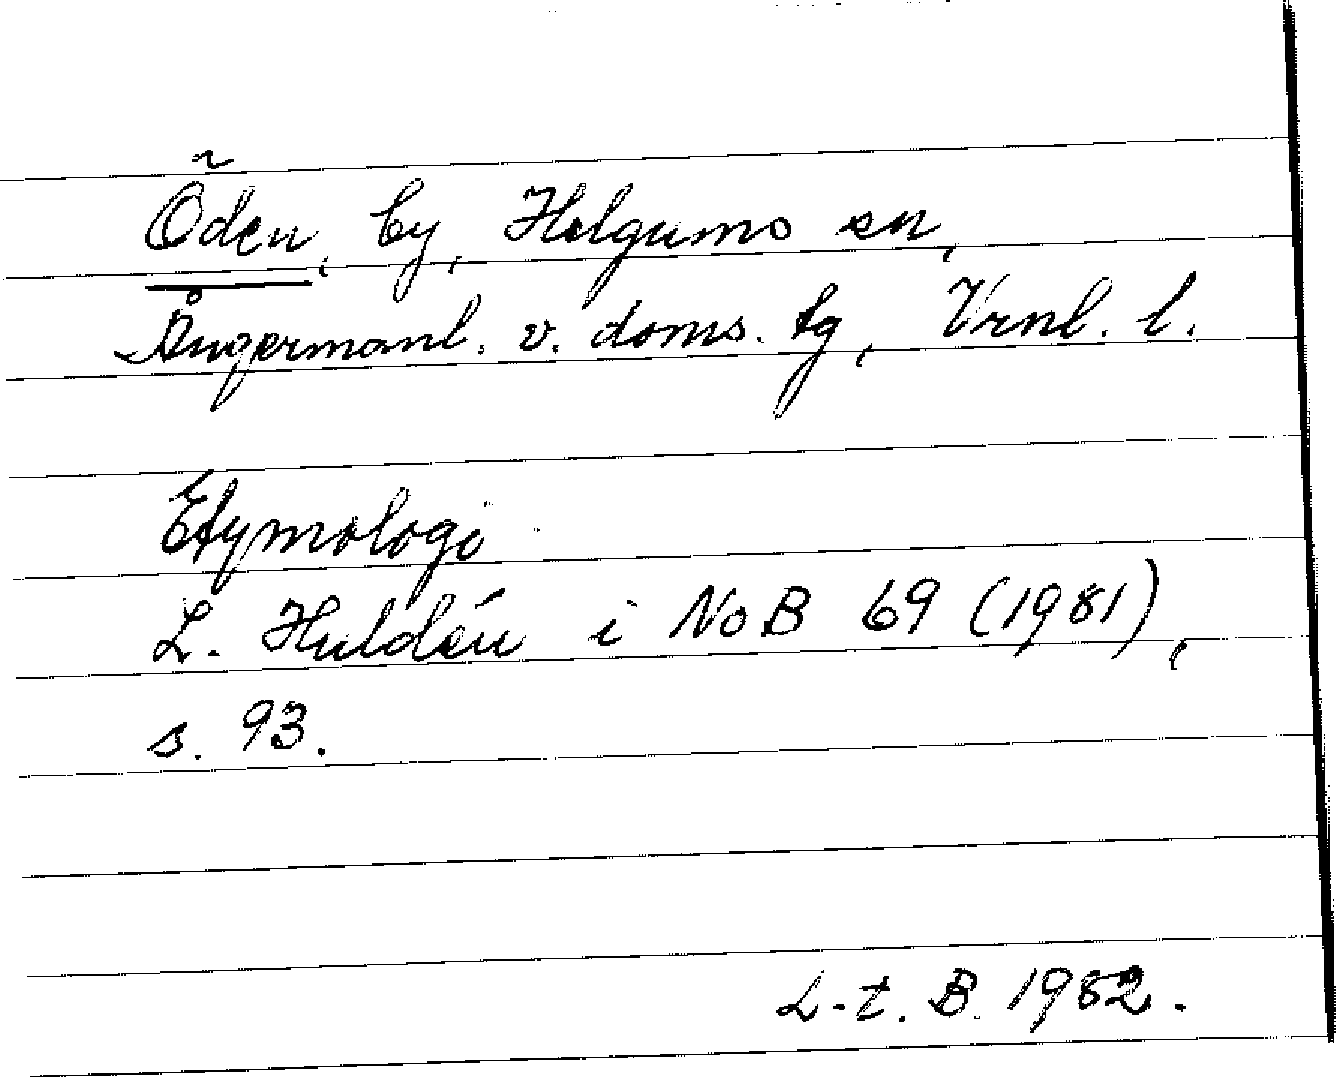 Öden, by, Helgums sn,
Ångermanl. v. doms. tg, Vrnl. l.
Etymologi
L. Huldén i NoB 69 (1981),
s. 93.
L-t. B. 1982.